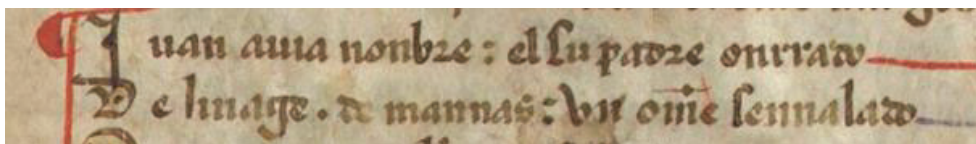 Juan auia nonbre : el su padre onrrado
De linage . de mannas : vn om̄e sennalado